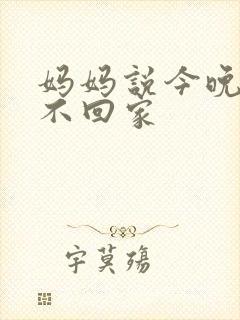 妈妈説今晚
不回家
字莫殇